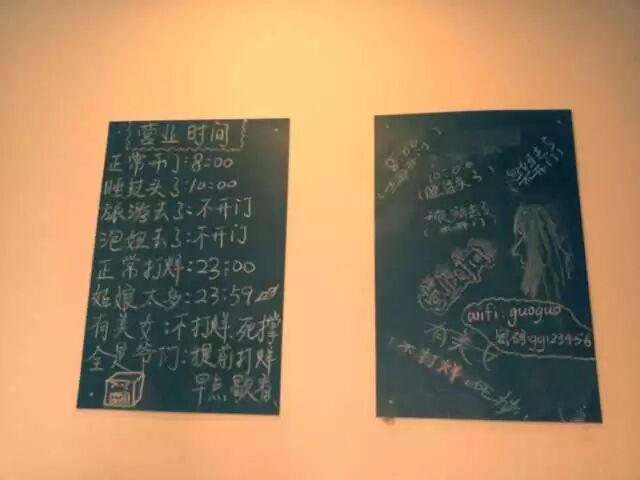 营业时间
正常开门:8:00
睡过头了:10:00
旅游去了:不开门
泡妞去了:不开门
正常打烊:23:00
姑娘太多:23:59
有美女:不打烊死撑
全是爷们:提前打烊
早点歇息
8:00
(正常开门)
10:00
(睡过头了)
泡妞去了
不开门
旅游去了
(不开门)
营业时间
wifi:guoguo
密码:gg123456
有美女
(不打烊,死撑